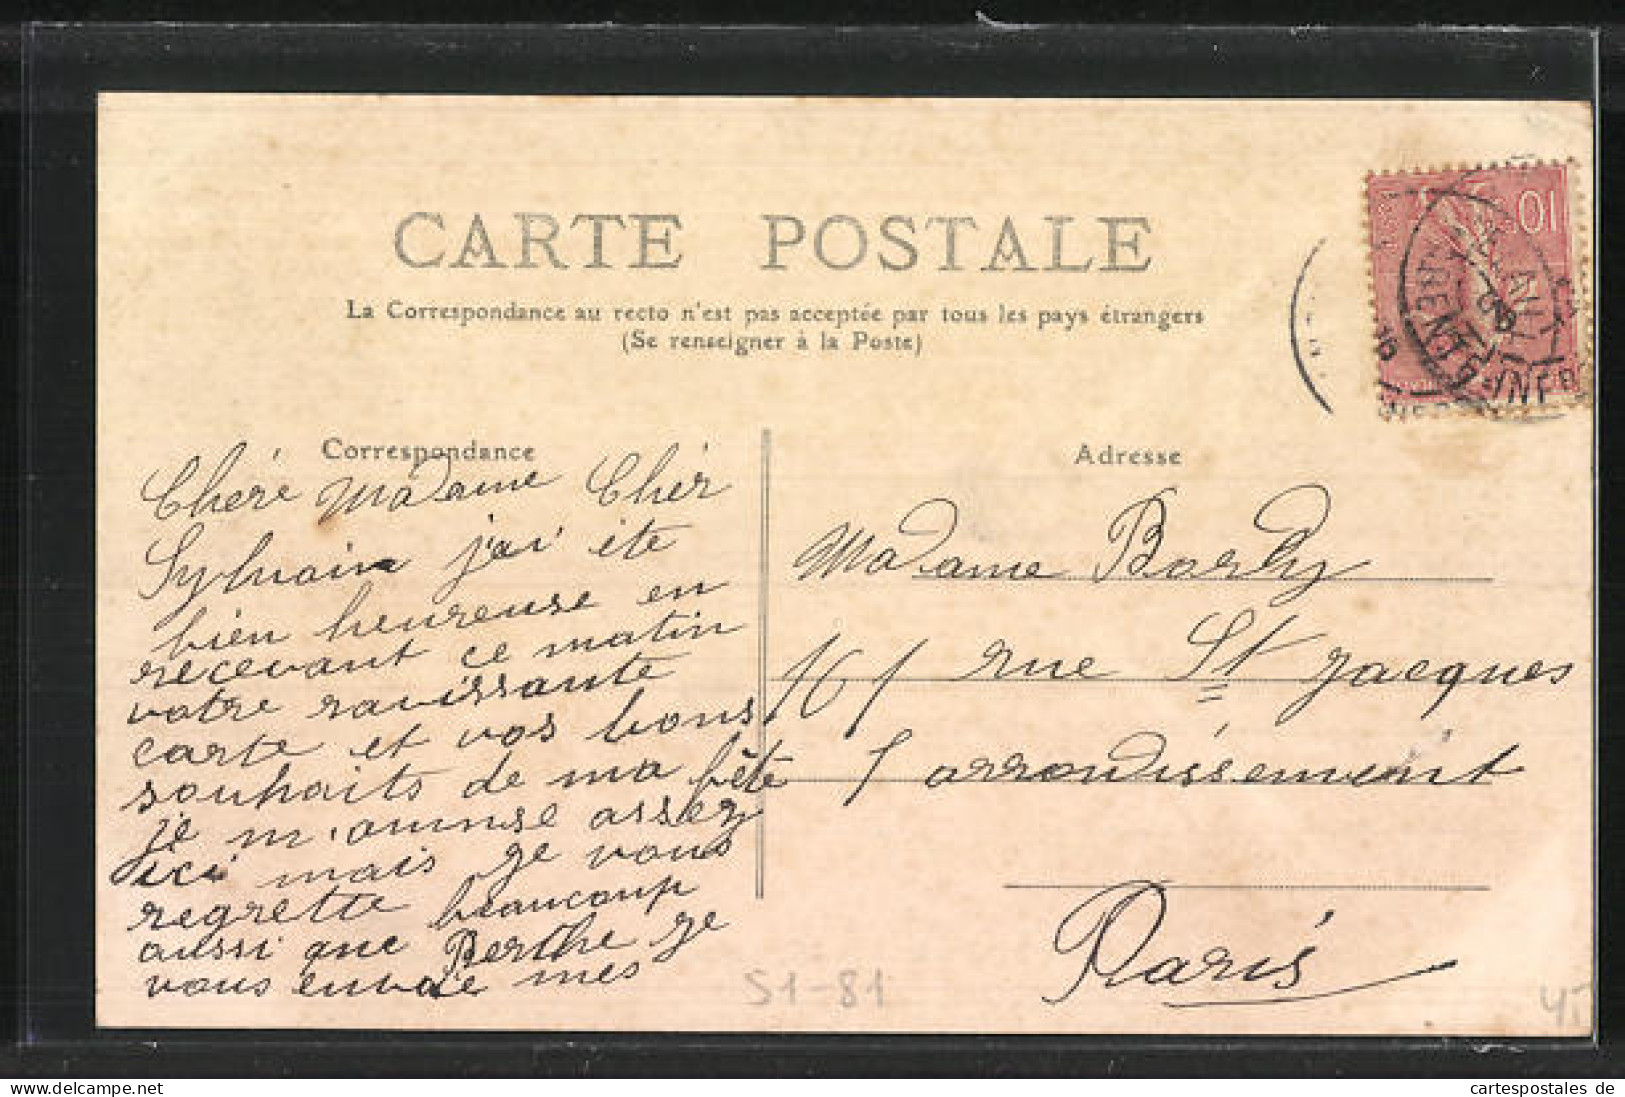 CARTE POSTALE
La Correspondance au recto n'est pas acceptée par tous les pays étrangers
(Se renseigner à la Poste)
10
Correspondance
Chéré Madame Chér
Sylvain j'ai été
bien heureuse en
recevant ce matin
votre ravissante
carte et vos bons
souhaits de ma fête
je m'amuse assez
ici mais je vous
regrette beaucoup
aussi que Berthe je
vous envoie mes
Adresse
Madame Barby
161 rue St Jacques
5 arrondissement
Paris
S1-81
45
cartespostales de